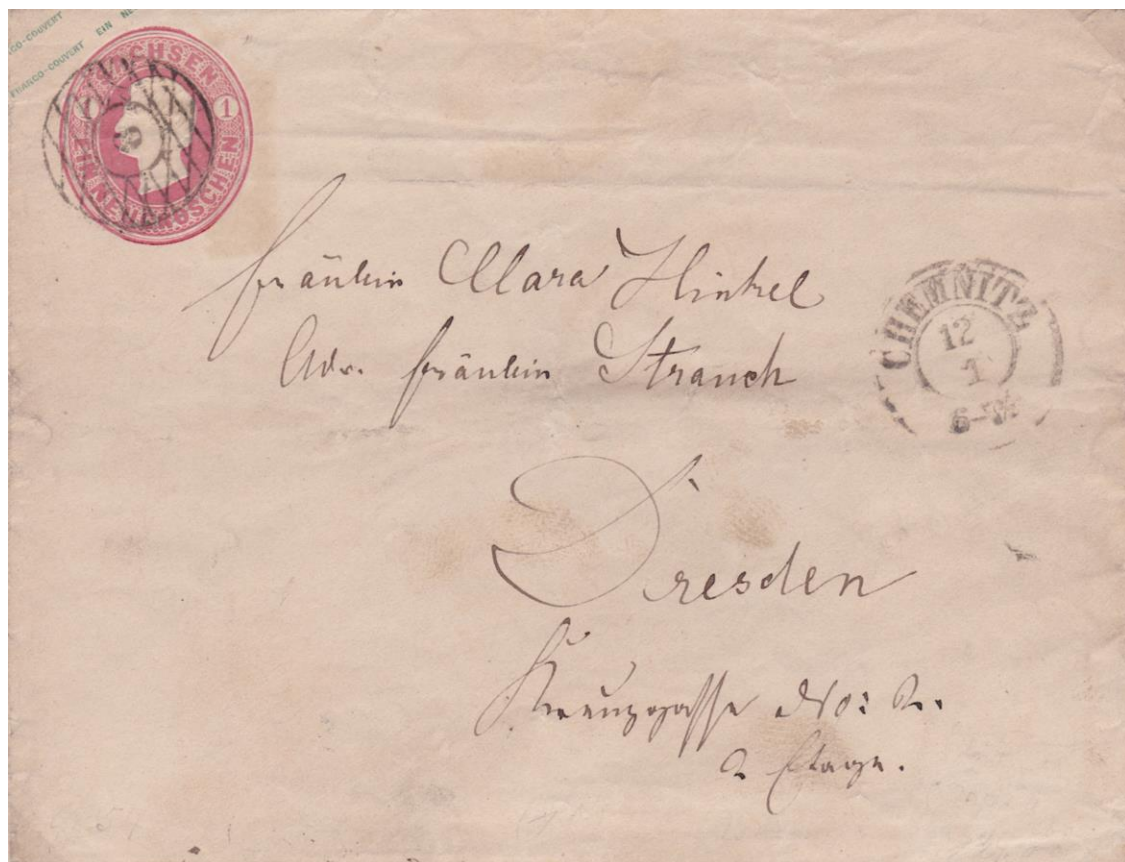 CO-COUVERT
FRANCO-COUVERT EIN NE
SACHSEN
1 1
EIN NEUGROSCHEN
8
Fräulein Clara Hinkel
Adr. Fräulein Strauch
CHEMNITZ
12
1
Dresden
Kreuzgasse No: 2.
2 Etage.